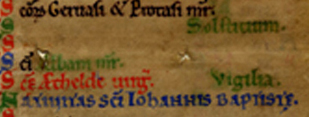 Geruasi & Protasi mr̃.
Solsticium.
Albani mr̃.
Etheldr̃ uirg̃.
Vigilia.
Natiuitas sc̃i Iohannis baptistę.